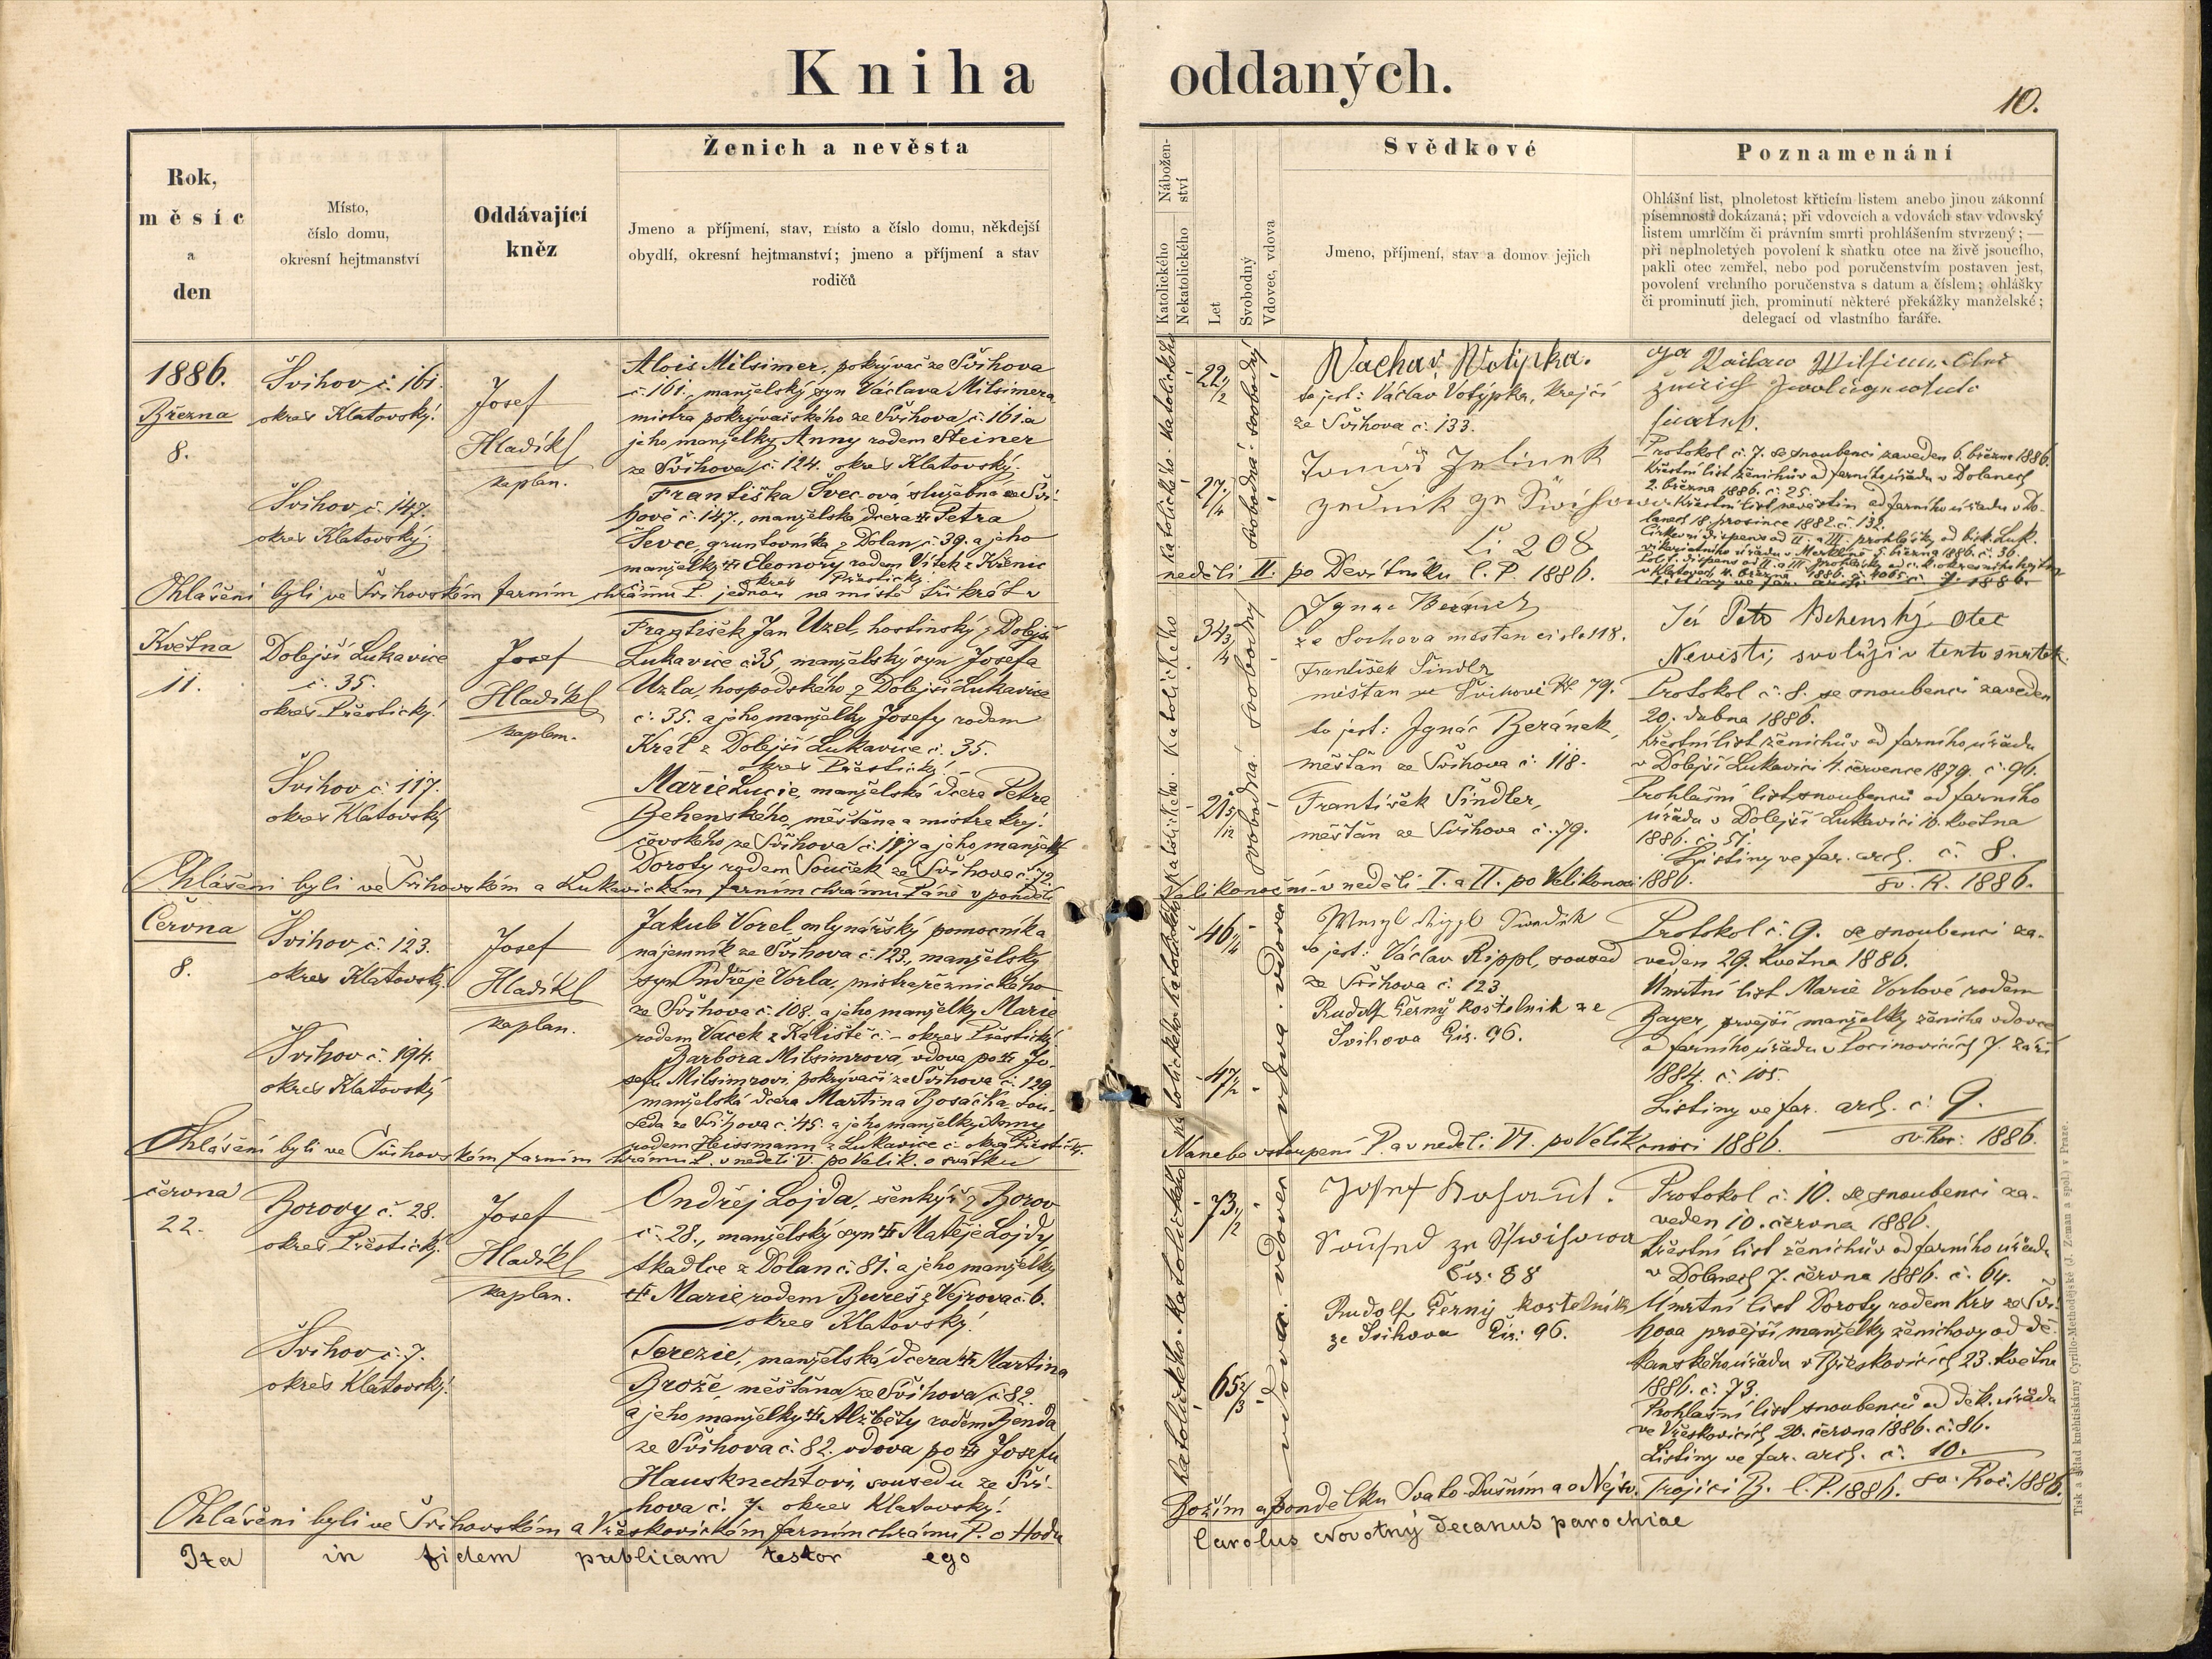 Kniha oddaných.
10.
Rok,
měsíc
a
den
Místo,
číslo domu,
okresní hejtmanství
Oddávající
kněz
Ženich a nevěsta
Jmeno a příjmení, stav, místo a číslo domu, někdejší
obydlí, okresní hejtmanství; jmeno a příjmení a stav
rodičů
Nábožen-
ství
Katolického
Nekatolického
Let
Svobodný
Vdovec, vdova
Svědkové
Jmeno, příjmení, stav a domov jejich
Poznamenání
Ohlášní list, plnoletost křticím listem anebo jinou zákonní
písemností dokázaná; při vdovcích a vdovách stav vdovský
listem umrlčím či právním smrti prohlášením stvrzený; —
při neplnoletých povolení k sňatku otce na živě jsoucího,
pakli otec zemřel, nebo pod poručenstvím postaven jest,
povolení vrchního poručenstva s datum a číslem; ohlášky
či prominutí jich, prominutí některé překážky manželské;
delegací od vlastního faráře.
1886.
Března
8.
Švihov č. 161.
okres Klatovský.
Švihov č. 147.
okres Klatovský.
Josef
Hladíkl
kaplan.
Alois Milsimer, pokrývač ze Švihova
č. 161., manželský syn Václava Milsimera
mistra pokrývačského ze Švihova č. 161. a
jeho manželky Anny rodem Steiner
ze Švihova č. 124. okres Klatovský.
Františka Švecová služebná ve Švi-
hově č. 147., manželská dcera Petra
Ševce, gruntovníka z Dolan č. 39. a jeho
manželky Eleonory rodem Vítek z Křenic
okres Přestický.
Katolického. Katolického
22 1/2
27 1/4
svobodná. svobodný
Wachav Wotipka.
to jest: Václav Votýpka, krejčí
ze Švihova č. 133.
Tomáš Jelinek
zedník ze Swihowa
Čí 208
Protokol č. 7. se snoubenci zaveden 6. března 1886.
Křestní list ženichův od farního úřadu v Dolanech
2. března 1886. č. 25.
Křestní list nevěstin od farního úřadu v Do-
lanech 18. prosince 1882. č. 132.
Církevní dispens od II. a III. prohlášky od bisk.
vikariatního úřadu v Merklíně 5. března 1886. č. 36.
Ohlášeni byli ve Švihovském farním chrámu P. jednou na místě třikrát v
neděli II. po Devítníku l. P. 1886.
Května
11.
Dolejší Lukavice
č. 35.
okres Přestický.
Švihov č. 117.
okres Klatovský
Josef
Hladíkl
kaplan.
František Jan Uzel, hostinský z Dolejší
Lukavice č. 35, manželský syn Josefa
Uzla, hospodského z Dolejší Lukavice
č. 35. a jeho manželky Josefy rodem
Král z Dolejší Lukavice č. 35.
okres Přestický.
Marie Lucie, manželská dcera Petra
Behenského, měštana a mistra krej-
čovského ze Švihova č. 117 a jeho manželky
Doroty rodem Souček ze Švihova č. 72.
Katolického. Katolického
34 3/4
21 5/12
svobodná. svobodný
Ignac Beránek
ze Svihova mestan cislo 118.
František Šindler
měštan ve Švihově 79.
to jest: Ignác Beránek,
měštan ze Švihova č. 118.
František Šindler,
měštan ze Švihova č. 79.
Já Petr Behenský otec
Nevěsti, svoluji v tento sňatek.
Protokol č. 8. se snoubenci zaveden
20. dubna 1886.
Křestní list ženichův od farního úřadu
v Dolejší Lukavici 4. července 1879. č. 96.
Prohlašní list snoubenců od farního
úřadu v Dolejší Lukavici 10. května
1886. č. 51.
Listiny ve far. arch. č. 8.
sv. R. 1886.
Ohlášeni byli ve Švihovském a Lukavickém farním chrámu Páně v pondělí
Velikonoční v neděli I. a II. po Velikonoci 1886.
Června
8.
Švihov č. 123.
okres Klatovský.
Švihov č. 194.
okres Klatovský
Josef
Hladíkl
kaplan.
Jakub Vorel, mlynářský pomocník a
nájemník ze Švihova č. 123., manželský
syn Ondřeje Vorla, mistra řeznického
ze Švihova č. 108. a jeho manželky Marie
rodem Vacek z Kaliště č. – okres Přestický.
Barbora Milsimrová, vdova po Jo-
sefu Milsimrovi, pokrývači ze Švihova č. 129
manželská dcera Martina Bosáčka, sou-
seda ze Švihova č. 45. a jeho manželky Anny
rodem Heissmann z Lukavice č. okres Přestický.
Katolického. Katolického
46 1/4
47 1/2
vdova. vdovec
to jest: Václav Rippl, soused
ze Švihova č. 123
Rudolf Černý kostelnik ze
Svihova Čis. 96.
Protokol č. 9. se snoubenci za-
veden 29. května 1886.
Úmrtní list Marie Vorlové rodem
Bayer, prvější manželky ženicha vdovce
od farního úřadu v Pocinovicích 7. září
1884. č. 105.
Listiny ve far. arch. č. 9.
sv. Roč. 1886.
Ohlášeni byli ve Švihovském farním chrámu P. v neděli V. po Velik. o svátku
Nanebevstoupení P. a v neděli VI. po Velikonoci 1886.
června
22.
Borovy č. 28.
okres Přestický.
Švihov č. 7.
okres Klatovský.
Josef
Hladíkl
kaplan.
Ondřej Lojda, šenkýř z Borov
č. 28., manželský syn Matěje Lojdy
tkadlce z Dolan č. 81. a jeho manželky
Marie rodem Bureš z Vejrova č. 6.
okres Klatovský.
Terezie, manželská dcera Martina
Brože, měštana ze Švihova č. 82.
a jeho manželky Alžběty rodem Benda
ze Švihova č. 82. vdova po Josefu
Hausknechtovi, sousedu ze Švi-
hova č. 7. okres Klatovský.
Katolického. Katolického
73 1/2
65 2/3
vdova. vdovec
Josef
Soused ze Swihowa
Čis: 88
Rudolf Černý kostelnik
ze Svihova Čis: 96.
Protokol č. 10. se snoubenci za-
veden 10. června 1886.
Křestní list ženichův od farního úřadu
v Dolanech 7. června 1886. č. 64.
Úmrtní list Doroty rodem Krs ze Švi-
hova prvější manželky ženichovy od dě-
kanského úřadu v Vřeskovicích 23. května
1886. č. 73.
Prohlašní list snoubenců od děk. úřadu
ve Vřeskovicích 20. června 1886. č. 86.
Listiny ve far. arch. č. 10.
sv. Roč. 1886.
Ohlášeni byli ve Švihovském a Vřeskovickém farním chrámu P. o Hodu
Božím a pondělku Svato-Dušním a o Nejsv. Trojici B. l. P. 1886.
Ita in fidem publicam testor ego
Carolus Novotný decanus parochiae
Tisk a sklad knihtiskárny Cyrillo-Methodějské (J. Zeman a spol.) v Praze.